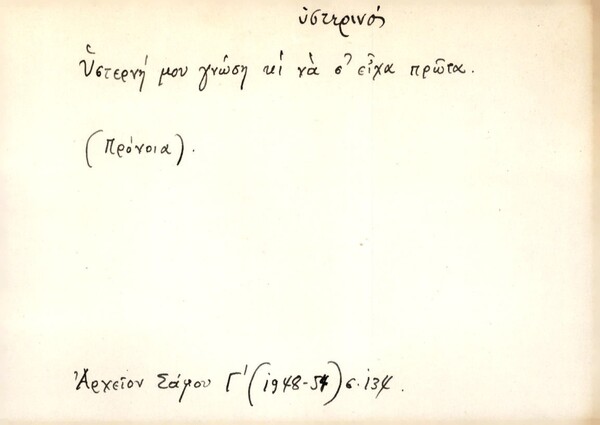 ὑστερινός
Ὑστερνή μου γνώση κἰ νὰ σ' εἶχα πρῶτα.
(Πρόνοια).
Ἀρχεῖον Σάμου Γ' (1948-54) σ. 134.